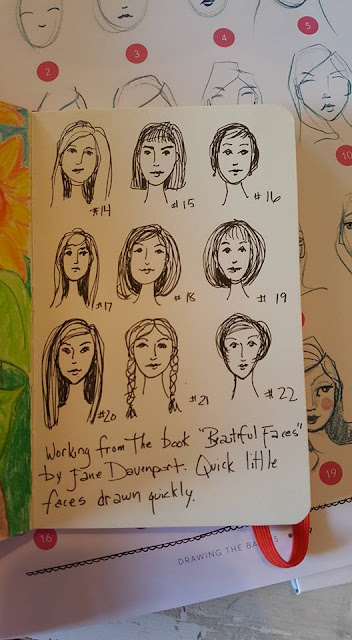 5
4
3
2
10
#14 #15 #16
#17 #18 #19
#20 #21 #22
Working from the book "Beautful Faces"
by Jane Davenport. Quick little
faces drawn quickly.
19
16
DRAWING THE